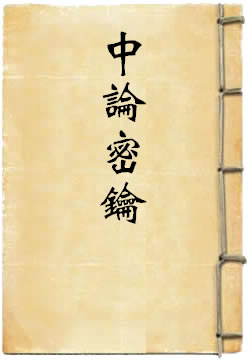 中論密鑰